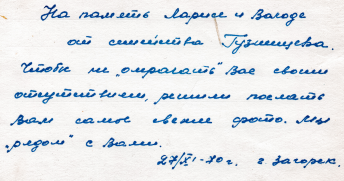 На память Ларисе и Володе
от семейства Гузнищева.
Чтобы не „омрачать" Вас своим
отсутствием, решили послать
Вам самое свежее фото. Мы
„рядом" с Вами.
27/XI-70г. г. Загорск.